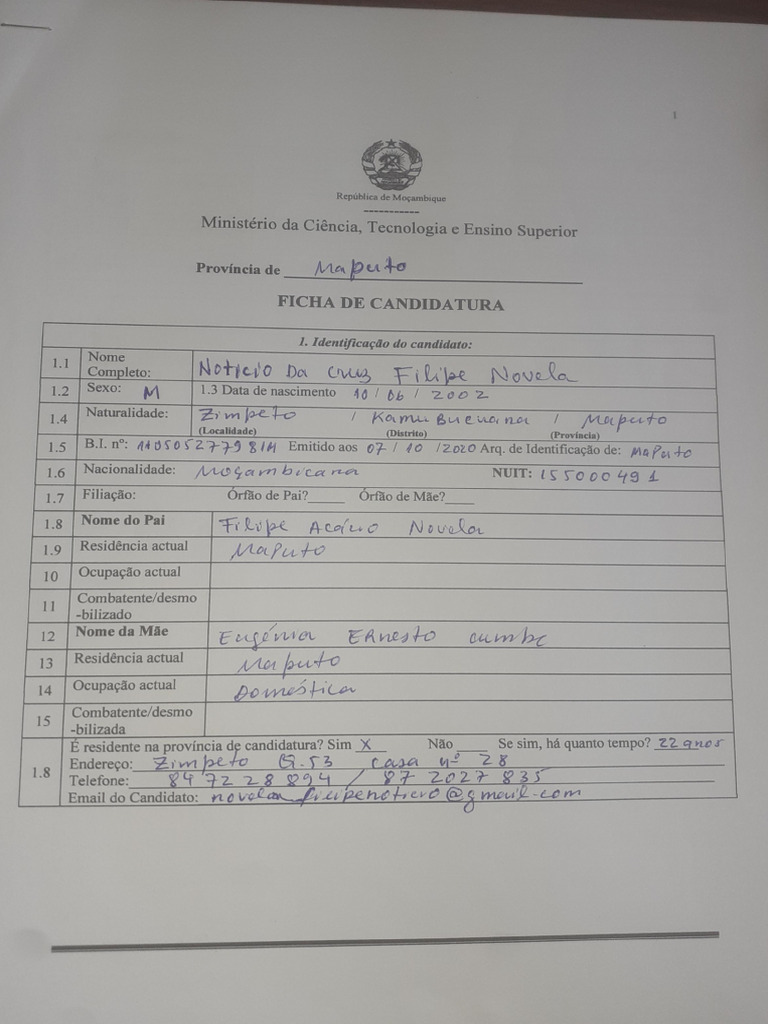 1
República de Moçambique
-----------
Ministério da Ciência, Tecnologia e Ensino Superior
Província de Maputo
FICHA DE CANDIDATURA
1. Identificação do candidato:
1.1 Nome Completo: Noticio Da Cruz Filipe Novela
1.2 Sexo: M 1.3 Data de nascimento 10 / 06 / 2002
1.4 Naturalidade: Zimpeto / KamuBucuana / Maputo
(Localidade) (Distrito) (Província)
1.5 B.I. nº: Emitido aos 07 / 10 / 2020 Arq. de Identificação de: Maputo
1.6 Nacionalidade: Moçambicana NUIT: 155000491
1.7 Filiação: Órfão de Pai?_____ Órfão de Mãe?____
1.8 Nome do Pai Filipe Novela
1.9 Residência actual Maputo
10 Ocupação actual
11 Combatente/desmo
-bilizado
12 Nome da Mãe Eugénia Ernesto Cumbe
13 Residência actual Maputo
14 Ocupação actual Doméstica
15 Combatente/desmo
-bilizada
1.8 É residente na província de candidatura? Sim X Não ____ Se sim, há quanto tempo? 22 anos
Endereço: Zimpeto Q.53 casa nº 28
Telefone: 847228894 / 87 2027 835
Email do Candidato: